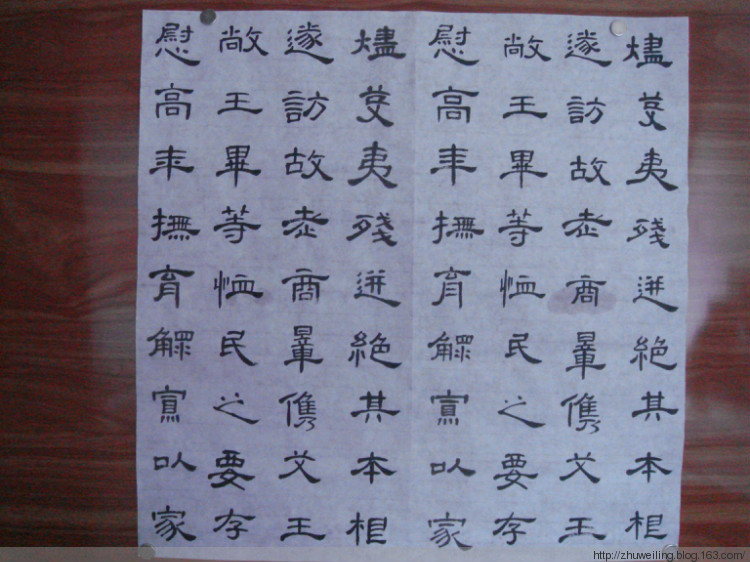 燼芟夷殘迸絕其本根
遂訪故老商量儁艾王
敞王畢等恤民之要存
慰高年撫育鰥寡以家
燼芟夷殘迸絕其本根
遂訪故老商量儁艾王
敞王畢等恤民之要存
慰高年撫育鰥寡以家
http://zhuweiling.blog.163.com/